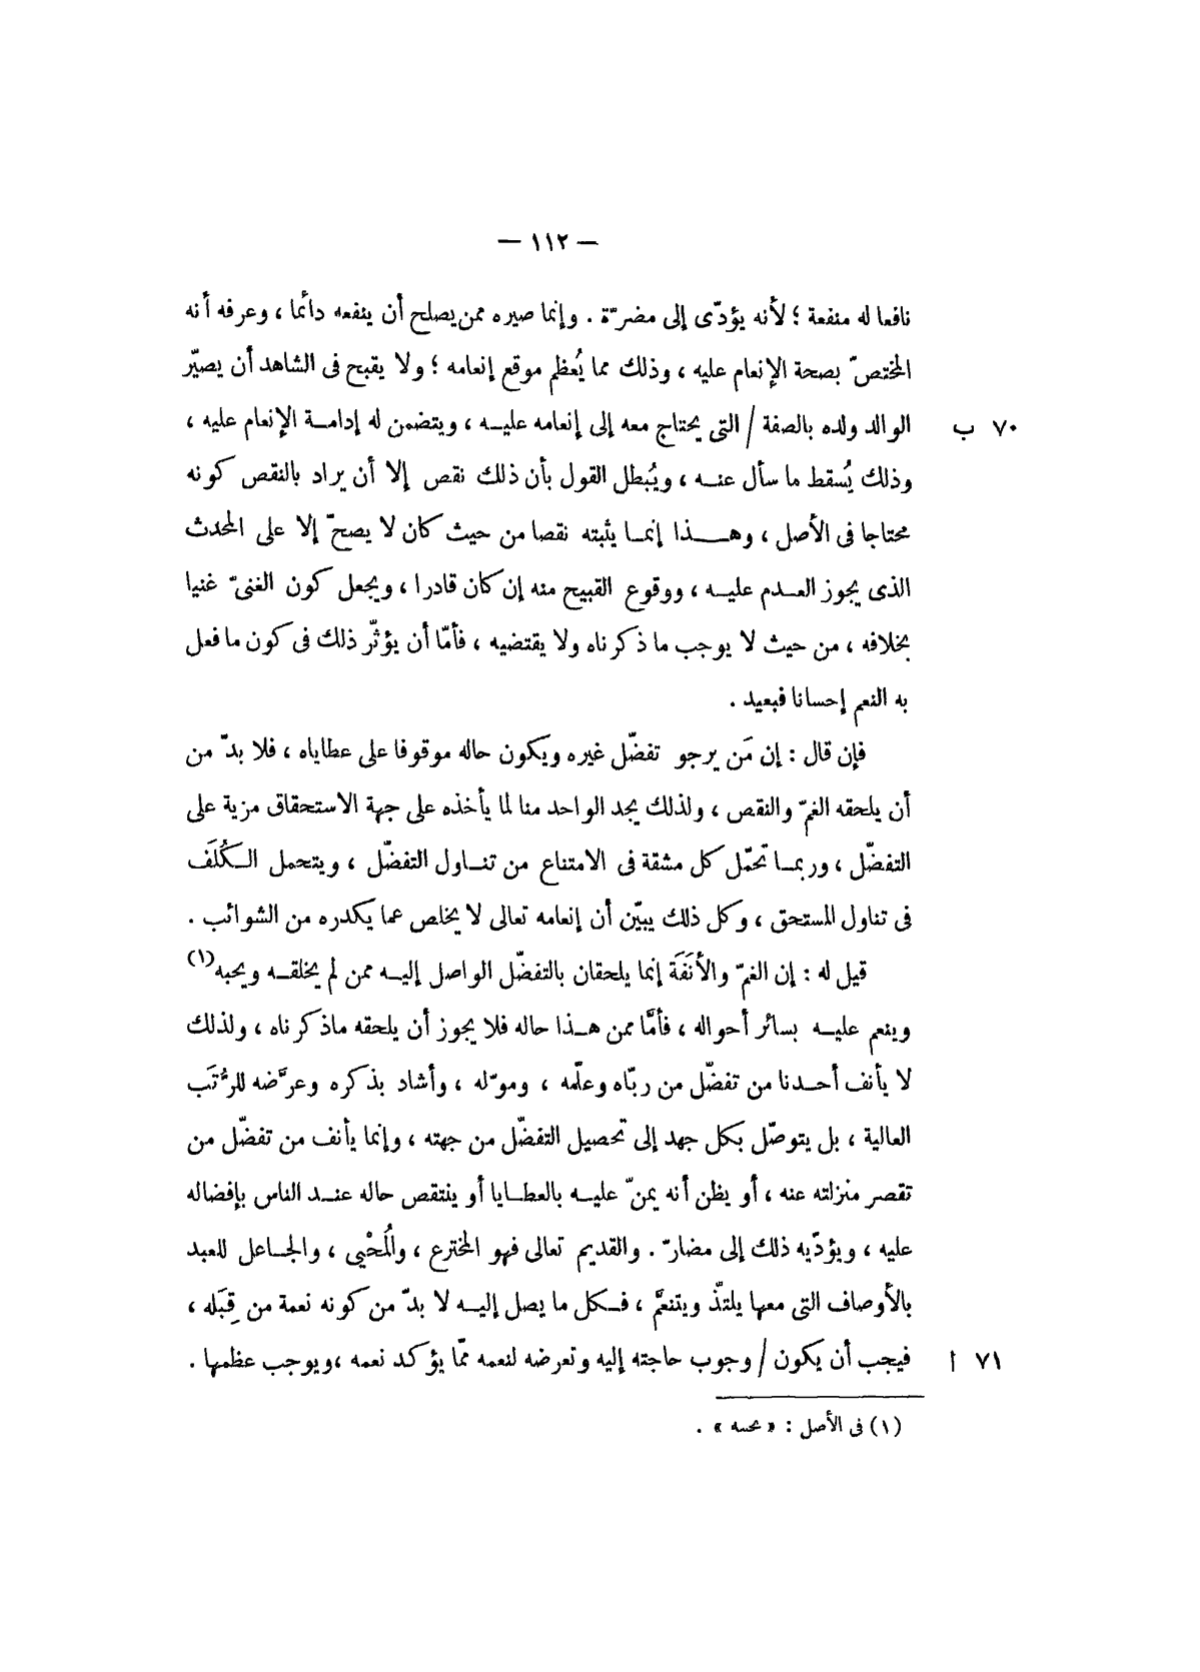 — ١١٢ —
نافعا له منفعة ؛ لأنه يؤدّى إلى مضرّة . وإنما صيره ممن يصلح أن ينفعه دائما ، وعرفه أنه
المختصّ بصحة الإنعام عليه ، وذلك مما يُعظم موقع إنعامه ؛ ولا يقبح فى الشاهد أن يصيّر
الوالد ولده بالصفة / التى يحتاج معه إلى إنعامه عليه ، ويتضمن له إدامة الإنعام عليه ، ٧٠ ب
وذلك يُسقط ما سأل عنه ، ويُبطل القول بأن ذلك نقص إلا أن يراد بالنقص كونه
محتاجا فى الأصل ، وهذا إنما يثبته نقصا من حيث كان لا يصحّ إلا على المحدث
الذى يجوز العدم عليه ، ووقوع القبيح منه إن كان قادرا ، ويجعل كون الغنىّ غنيا
بخلافه ، من حيث لا يوجب ما ذكرناه ولا يقتضيه ، فأمّا أن يؤثّر ذلك فى كون ما فعل
به النعم إحسانا فبعيد .
فإن قال : إن مَن يرجو تفضّل غيره ويكون حاله موقوفا على عطاياه ، فلا بدّ من
أن يلحقه الغمّ والنقص ، ولذلك يجد الواحد منا لما يأخذه على جهة الاستحقاق مزية على
التفضّل ، وربما تحمّل كل مشقة فى الامتناع من تناول التفضّل ، ويتحمل الكُلَف
فى تناول المستحق ، وكل ذلك يبيّن أن إنعامه تعالى لا يخلص عما يكدره من الشوائب .
قيل له : إن الغمّ والأنَفَة إنما يلحقان بالتفضّل الواصل إليه ممن لم يخلقه ويحبه(١)
وينعم عليه بسائر أحواله ، فأمَّا ممن هذا حاله فلا يجوز أن يلحقه ماذكرناه ، ولذلك
لا يأنف أحدنا من تفضّل من ربّاه وعلّمه ، وموّله ، وأشاد بذكره وعرَّضه للرُّتَب
العالية ، بل يتوصّل بكل جهد إلى تحصيل التفضّل من جهته ، وإنما يأنف من تفضّل من
تقصر منزلته عنه ، أو يظن أنه يمنّ عليه بالعطايا أو ينتقص حاله عند الناس بإفضاله
عليه ، ويؤدّيه ذلك إلى مضارّ . والقديم تعالى فهو المخترع ، والمُحْيى ، والجاعل للعبد
بالأوصاف التى معها يلتذّ ويتنعَّم ، فكل ما يصل إليه لا بدّ من كونه نعمة من قِبَله ،
فيجب أن يكون / وجوب حاجته إليه وتعرضه لنعمه ممّا يؤكد نعمه ،ويوجب عظمها . ٧١ أ
(١) فى الأصل : « محسه » .